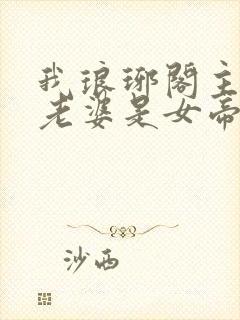 我琅琊阁主
老婆是女帝
沙西